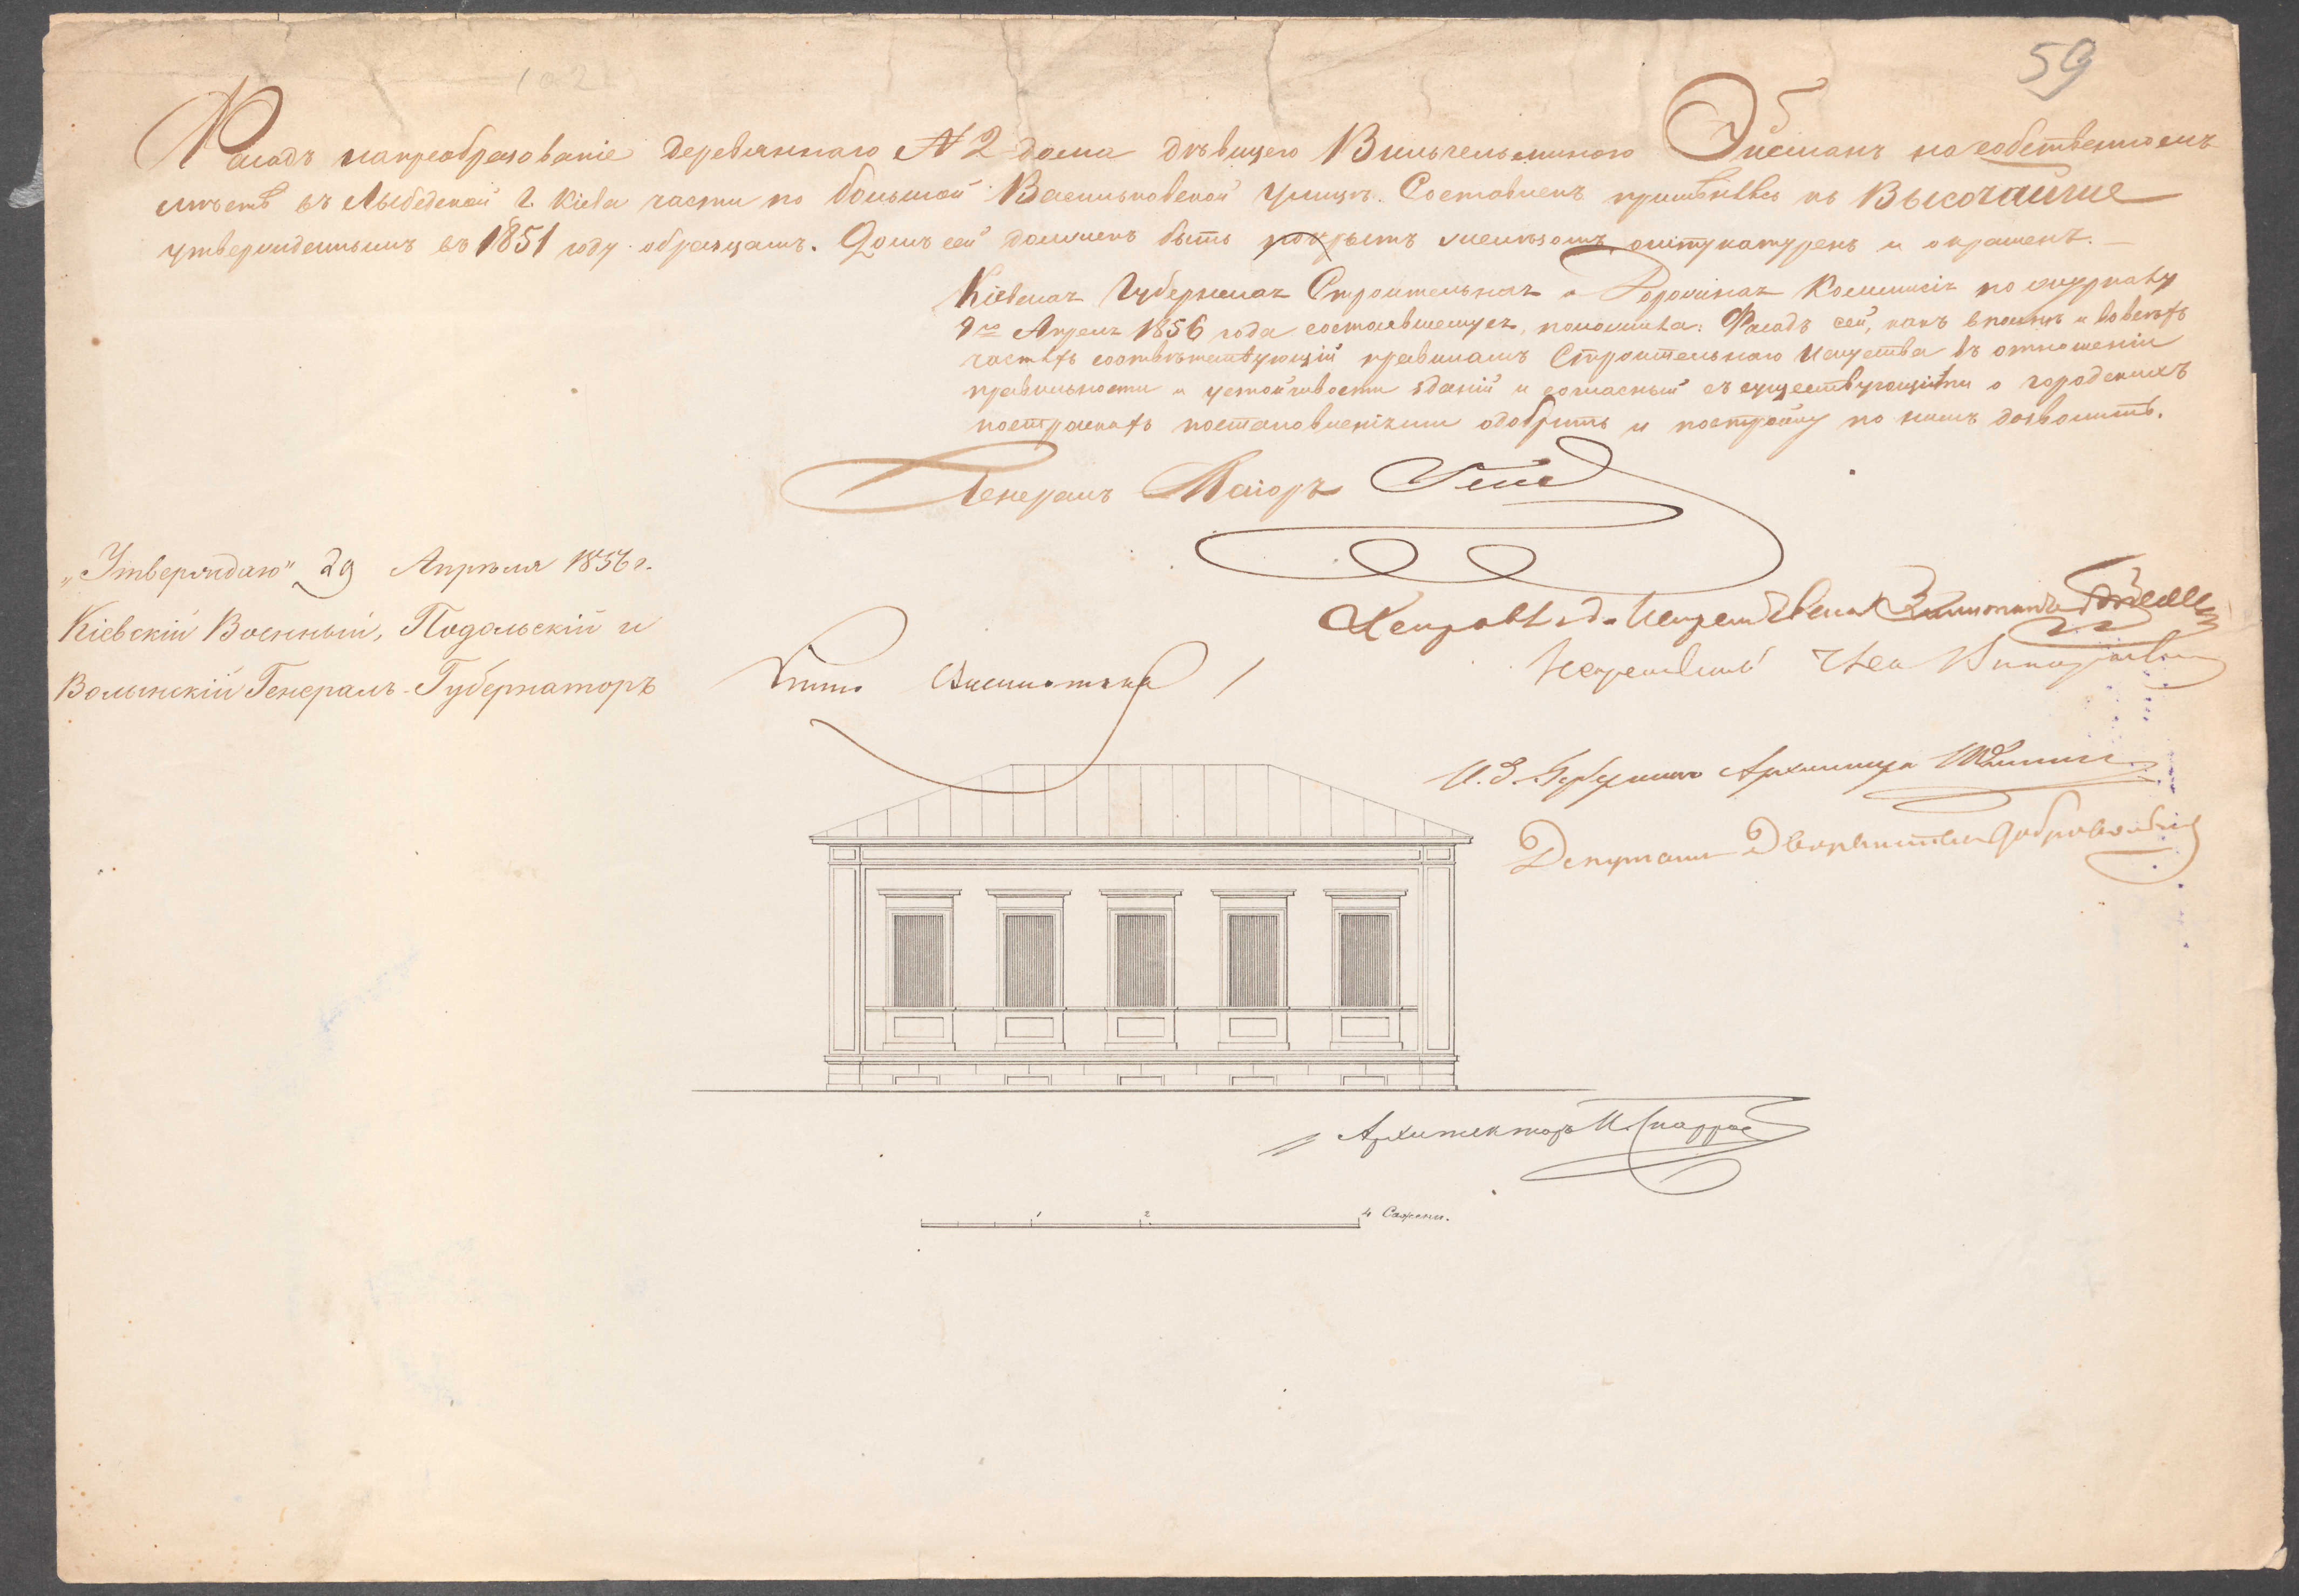 59
Фасадъ на преобразованіе деревяннаго № 2 дома дѣвицею Вильгельминою Эйсманъ на собственномъ
мѣстѣ въ Лыбедской г. Кіева части по большой Васильковской улицѣ. Составленъ примѣнясь къ Высочайше
утвержденнымъ въ 1851 году образцамъ. Домъ сей долженъ быть покрытъ желѣзомъ, оштукатуренъ и окрашенъ.
Кіевская Губернская Строительная и Дорожная Коммисія по журналу
Апреля 1856 года состоявшемуся, положила: Фасадъ сей, какъ вполнѣ и во всѣхъ
частяхъ соотвѣтствующій правиламъ Строительнаго Искуства въ отношеніи
правильности и устойчивости зданій и согласный съ существующими о городскихъ
постройкахъ постановленіями одобрить и постройку по немъ дозволить.
Генералъ Маіоръ Гессе
„Утверждаю" 29 Апрѣля 1856 г.
Кіевскій Военный, Подольскій и
Волынскій Генералъ-Губернаторъ
Князь Васильчиковъ
И. д. Искуственной
Непремѣнный Членъ
И. д. Губернскаго Архитектора
Депутатъ Дворянства Добровольскій
Архитекторъ И. Спарро
1 2 4 Сажени.